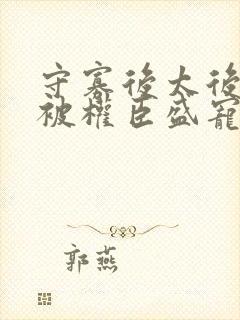 守寡後太後
被權臣盛寵
郭燕